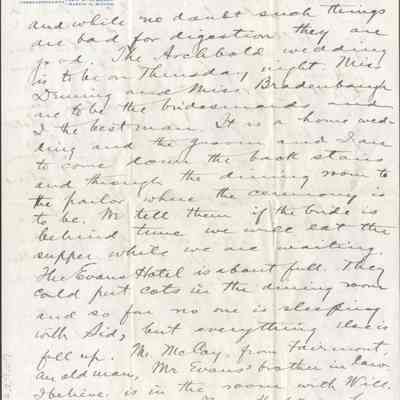 and while no doubt such things
are bad for digestion they are
good. The Archbold wedding
is to be on Thursday night. Miss
Dinning and Miss Bradenbaugh
are to be the bridesmaids and
I the best man. It is a home wed-
ding and the groom and I are
to come down the back stairs
and through the dining room to
the parlor where the ceremony is
to be. We tell them if the bride is
behind time we will eat the
supper while we are waiting.
The Evans Hotel is about full. They
could put cots in the dining room
and so far no one is sleeping
with Sid, but everything else is
full up. Mr. McCoy, from Fairmont,
an old man, Mr Evans' brother in law
I believe is in the room with Will.